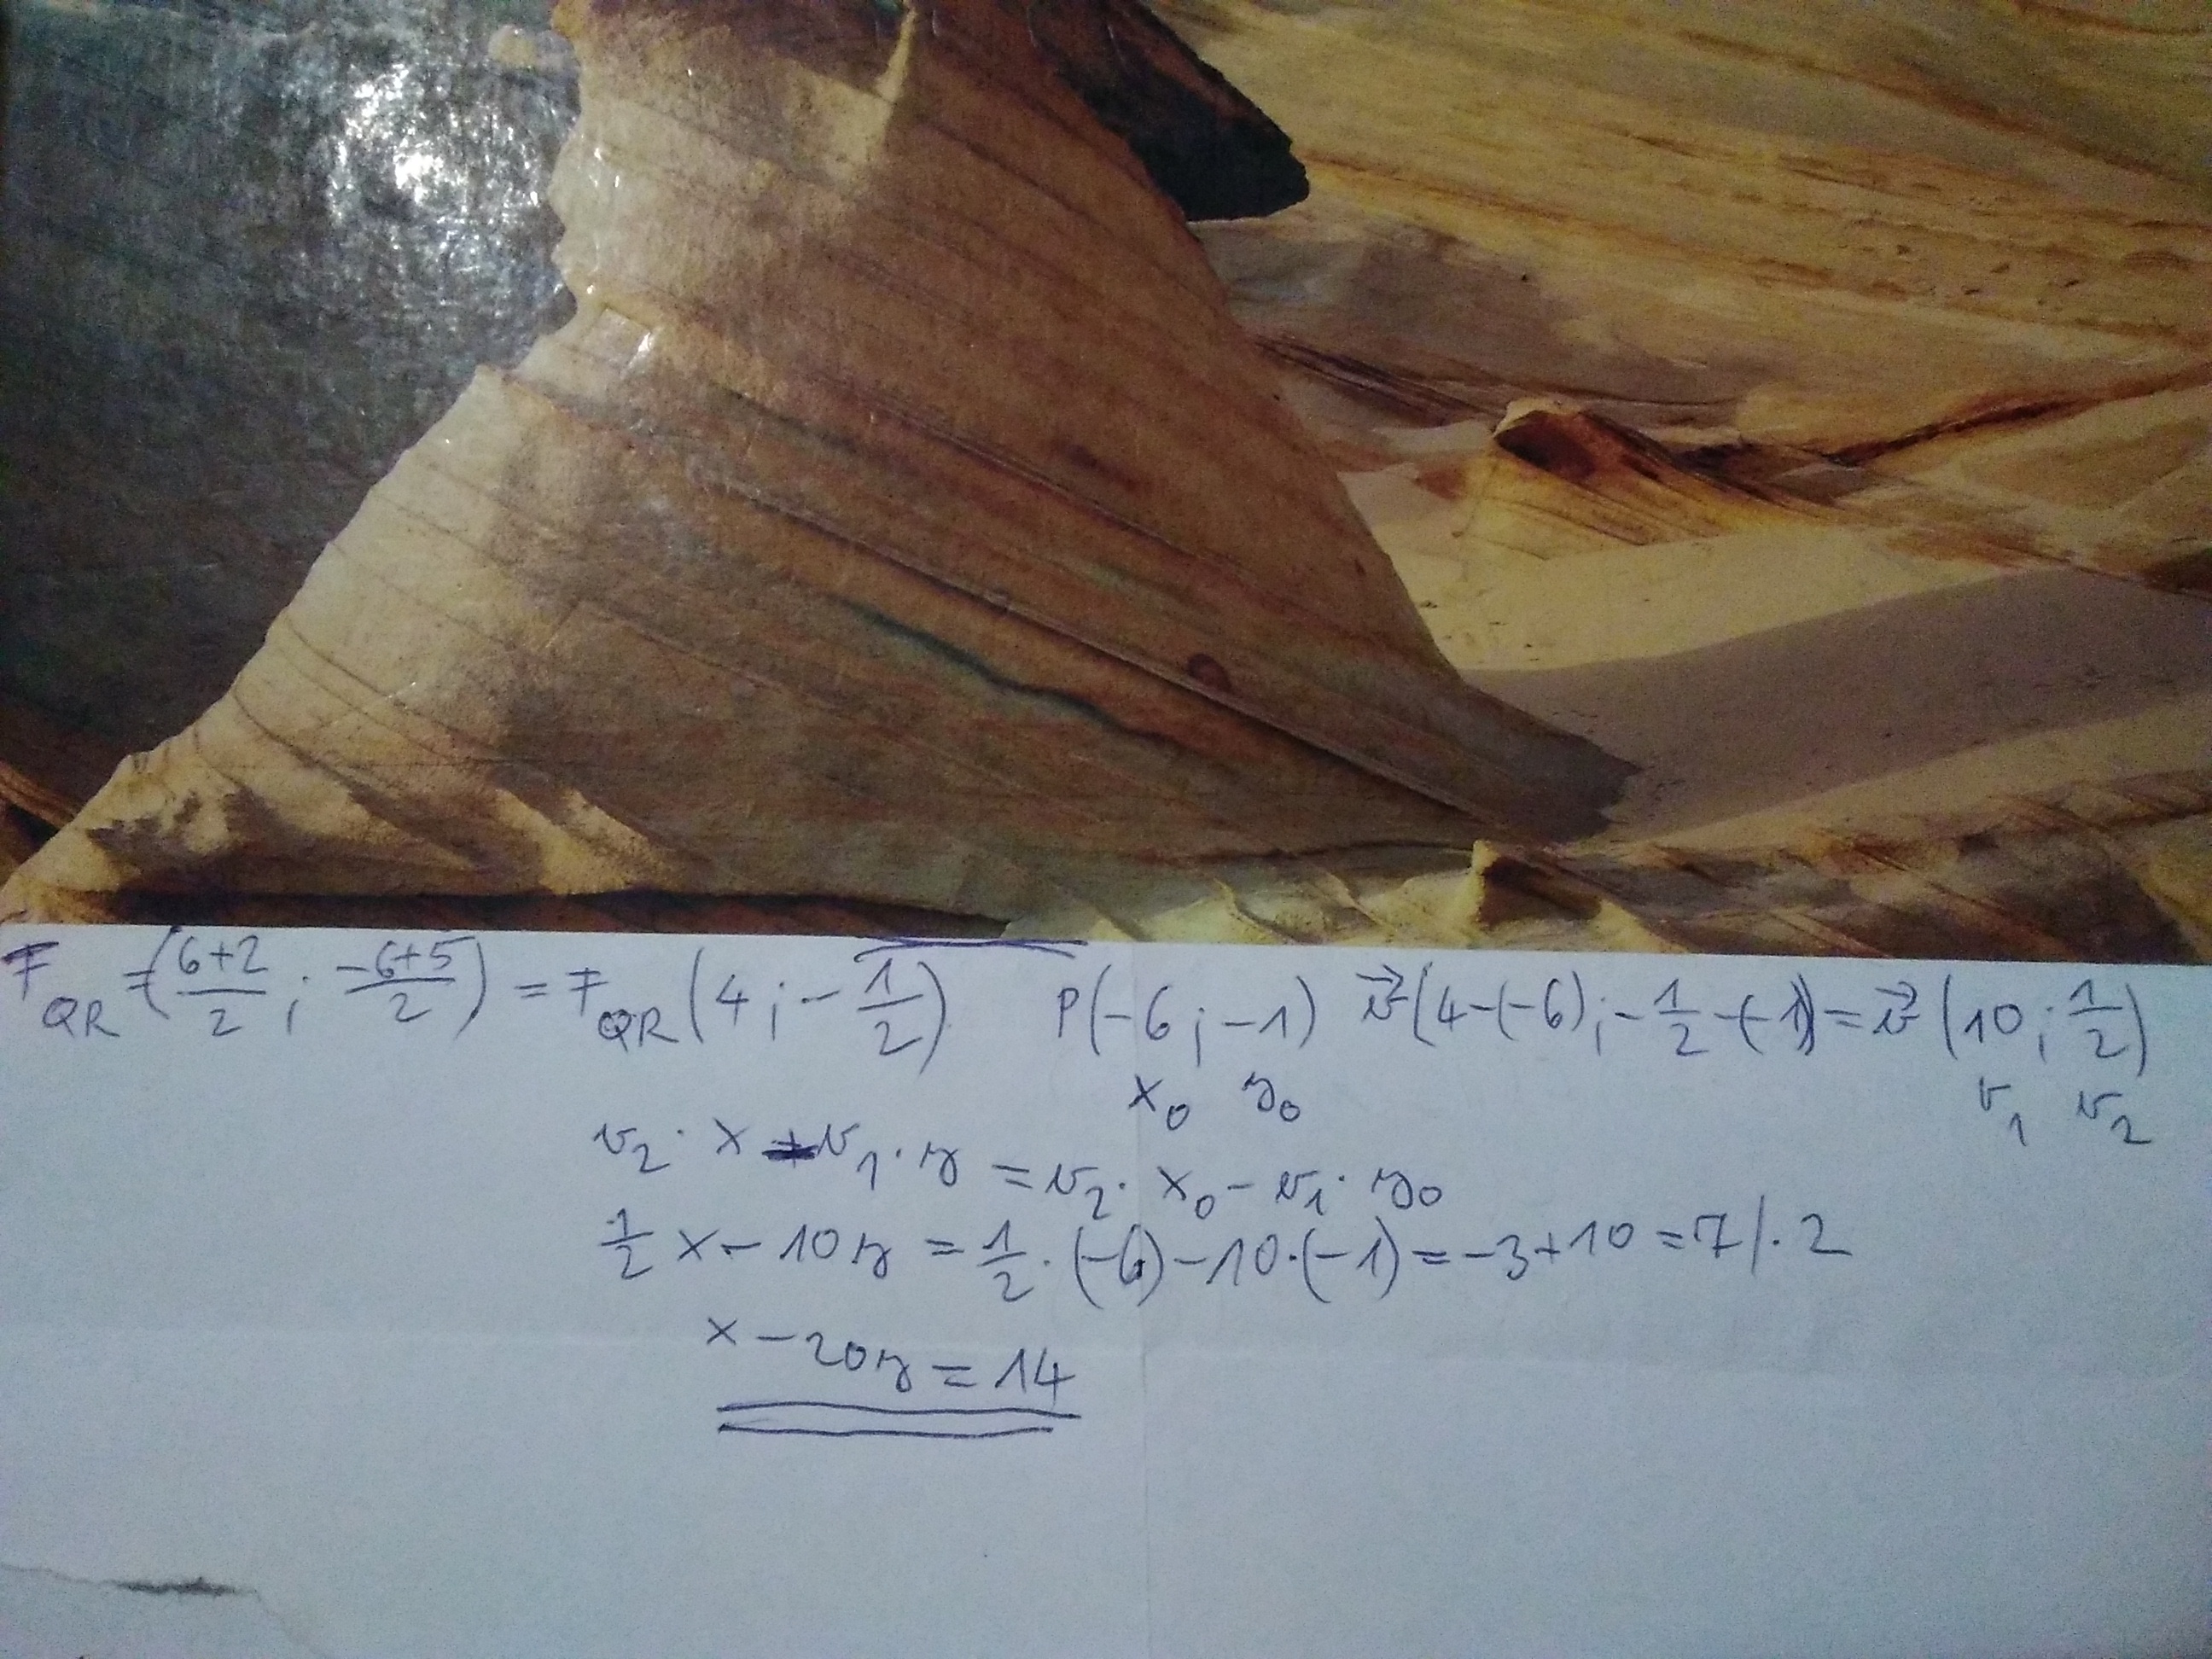 F_QR = (6+2/2 ; -6+5/2) = F_QR (4 ; -1/2) P(-6 ; -1) v⃗(4-(-6) ; -1/2-(-1)) = v⃗ (10 ; 1/2)
x₀ y₀ v₁ v₂
v₂ · x - v₁ · y = v₂ · x₀ - v₁ · y₀
1/2 x - 10y = 1/2 · (-6) - 10 · (-1) = -3 + 10 = 7 / · 2
x - 20y = 14